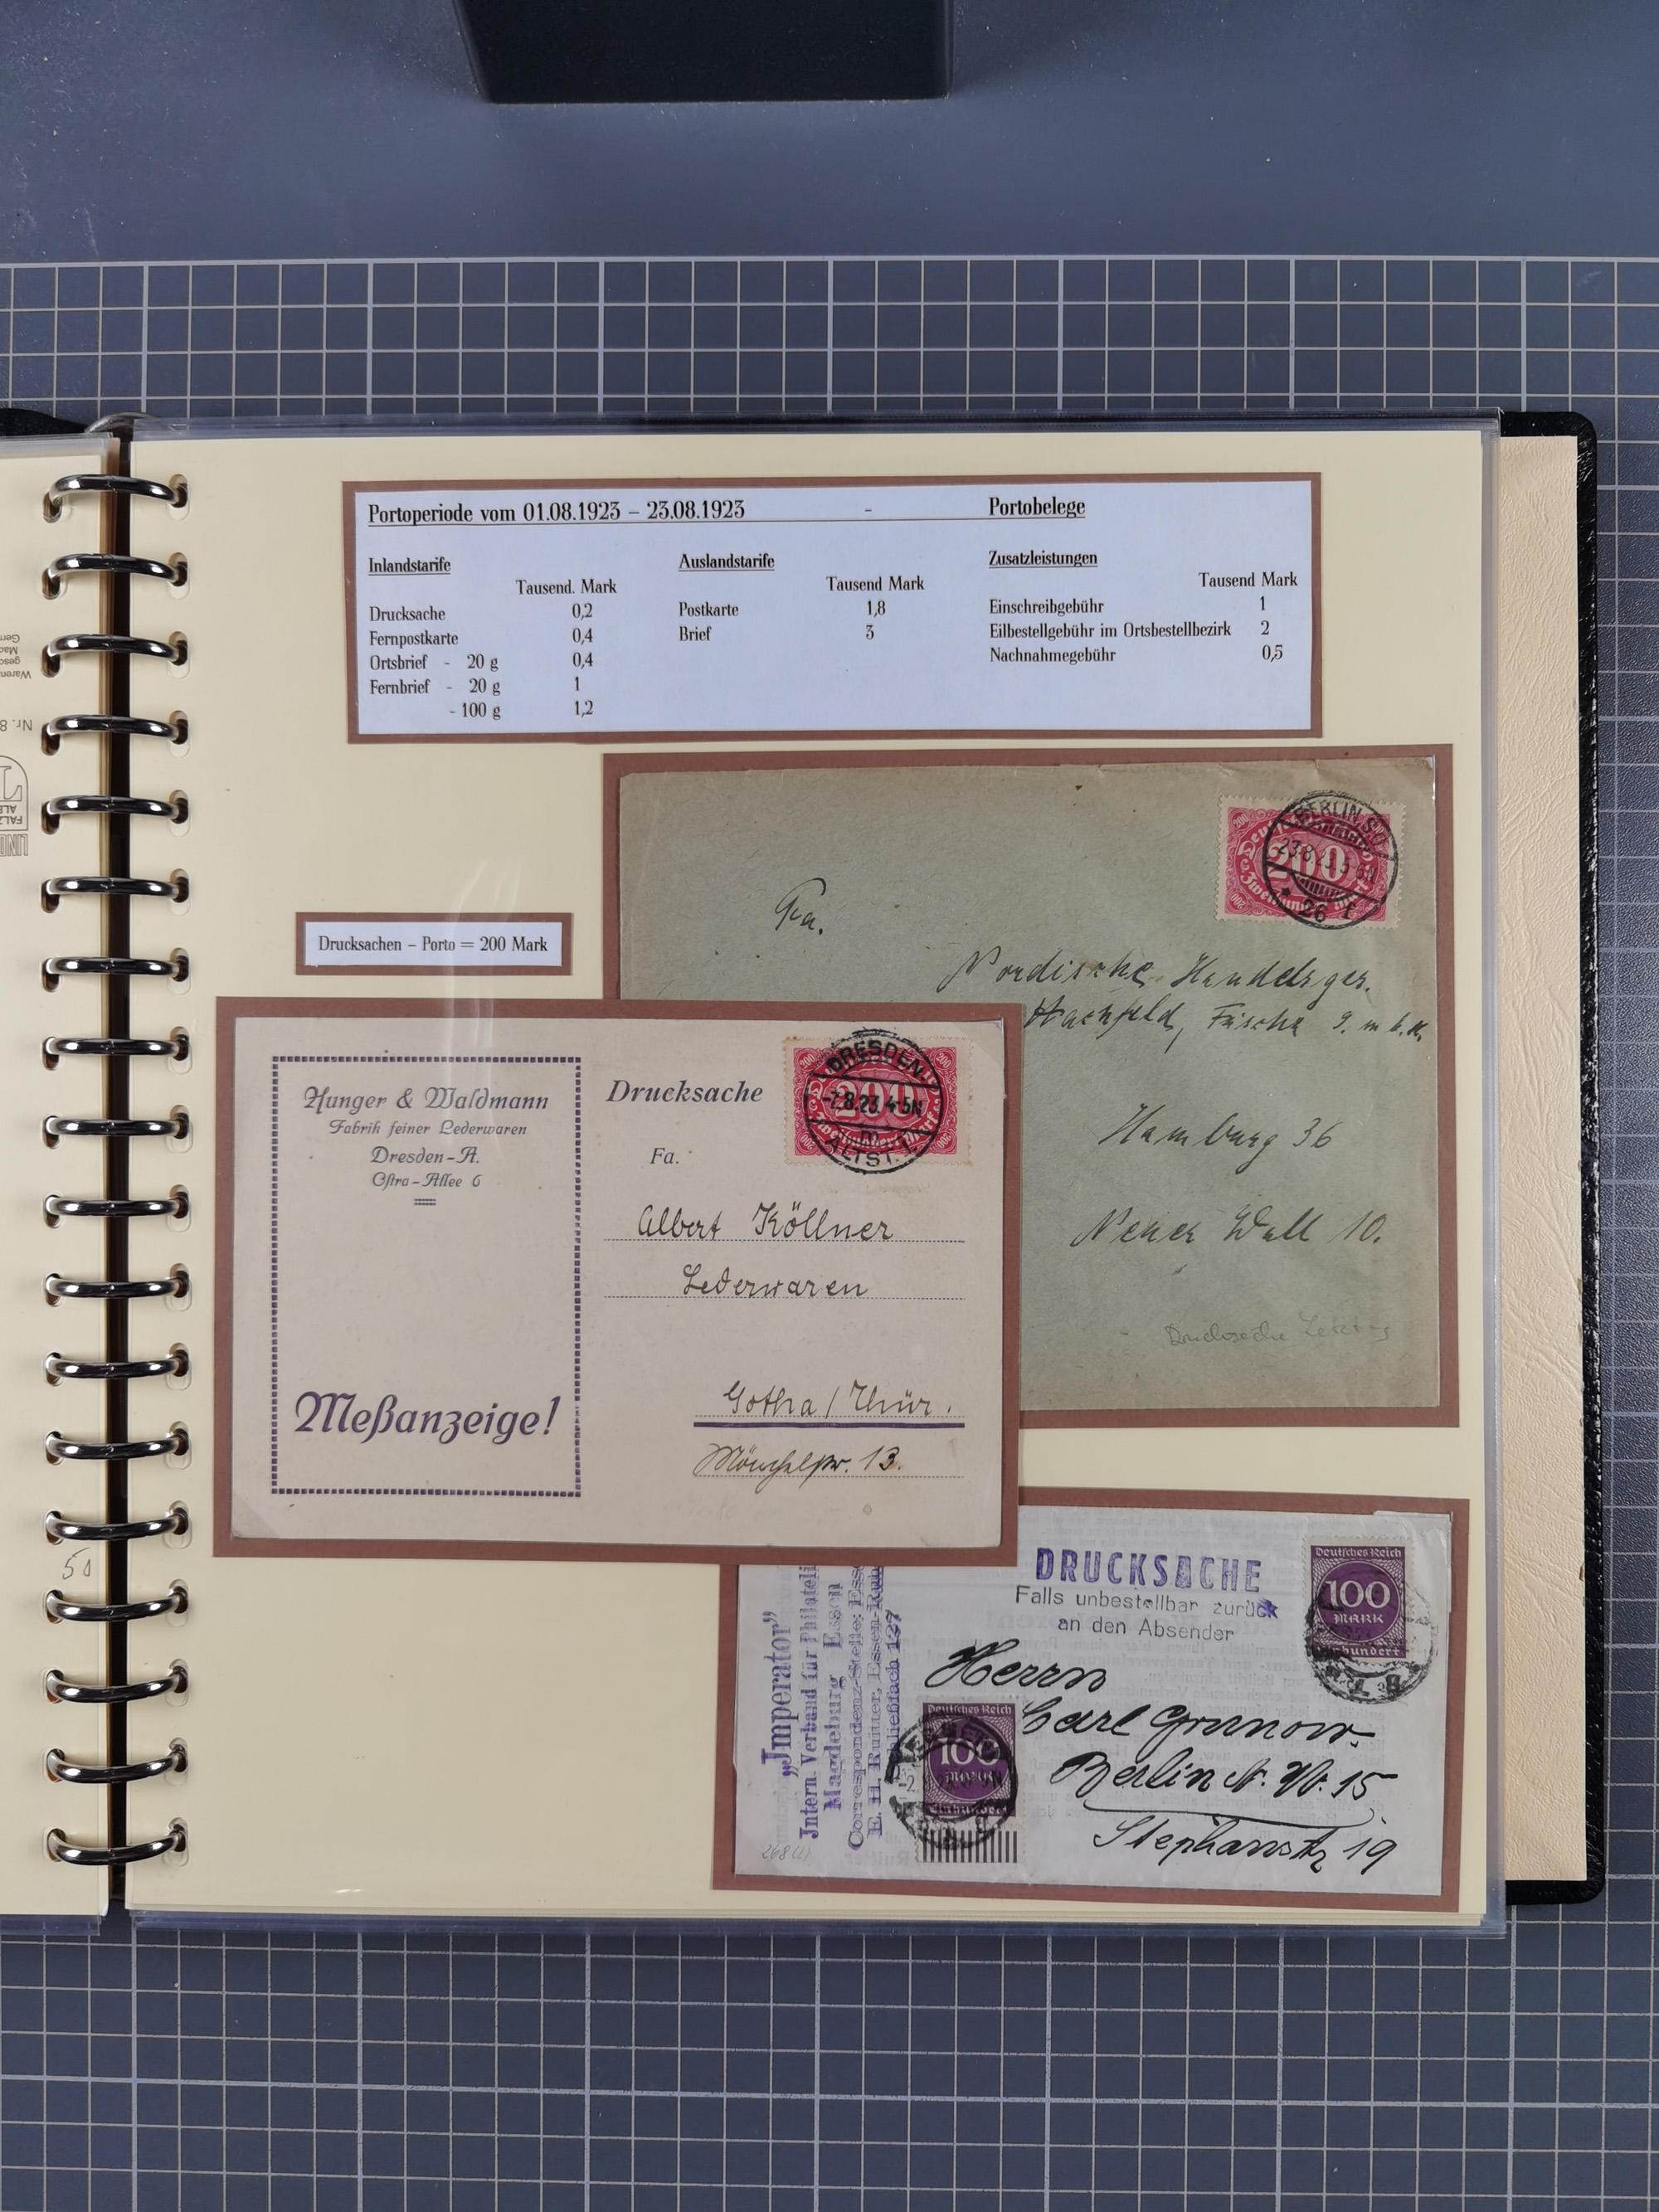 Portoperiode vom 01.08.1923 – 23.08.1923 – Portobelege
Inlandstarife Auslandstarife Zusatzleistungen
Tausend. Mark Tausend Mark Tausend Mark
Drucksache 0,2 Postkarte 1,8 Einschreibgebühr 1
Fernpostkarte 0,4 Brief 3 Eilbestellgebühr im Ortsbestellbezirk 2
Ortsbrief - 20 g 0,4 Nachnahmegebühr 0,5
Fernbrief - 20 g 1
- 100 g 1,2
Drucksachen – Porto = 200 Mark
BERLIN
23.8.23
200
26
Fa.
Nordische Handelsges.
Hachfeld, Fischer g.m.b.H.
Hamburg 36
Neuer Wall 10.
Drucksache
Hunger & Waldmann
Fabrik feiner Lederwaren
Dresden-A.
Ostra-Allee 6
Meßanzeige!
Drucksache
Fa.
200
DRESDEN
-7.8.23. 4-5N
ALTST.
Albert Köllner
Lederwaren
Gotha / Thür.
13.
DRUCKSACHE
Falls unbestellbar zurück
an den Absender
Deutsches Reich
100
MARK
Herrn
Carl Grunow
Berlin N.W. 15
Stephanstr 19
Deutsches Reich
100
MARK
„Imperator”
Intern. Verband für Philateli
Magdeburg Essen
Correspondenz-Stelle: Esse
E. H. Ruitter, Essen-Ruh
ließfach 127
50